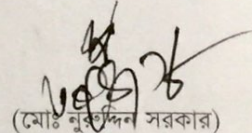 (মোঃ নুরুদ্দিন সরকার)